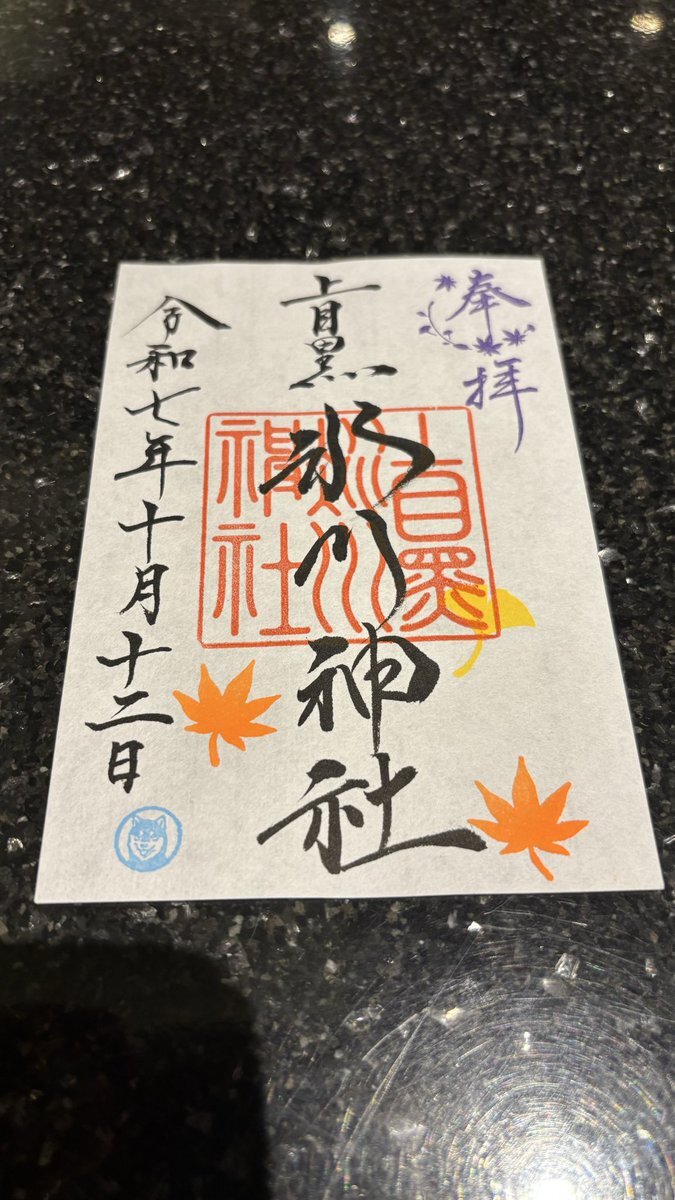 奉拝
上目黒
氷川神社
上目黒
氷川
神社
令和七年十月十二日